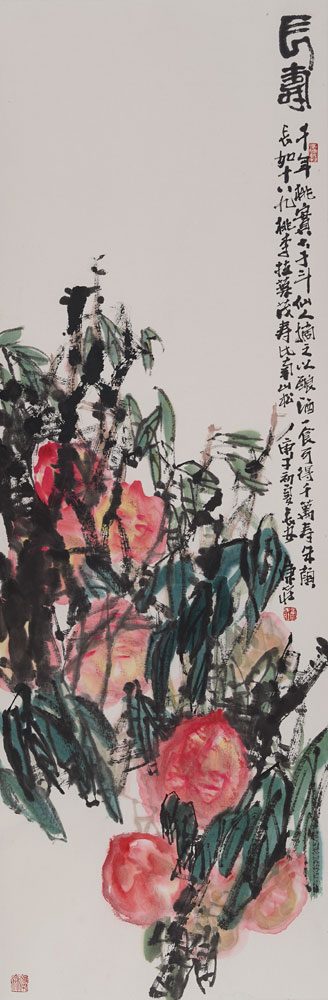 長壽
千年桃實大于斗仙人摘之以釀酒一食可得千萬壽朱顏
長如十八九桃李拉蘇設壽比南山松
庚子初夏長安